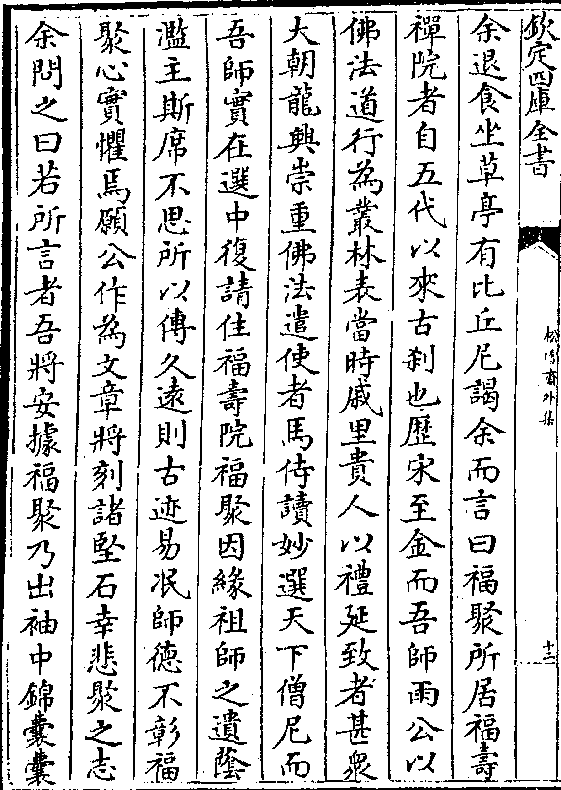 欽定四庫全書
松雪齋外集
十二
余退食坐草亭有比丘尼謁余而言曰福聚所居福壽
禪院者自五代以來古刹也歴宋至金而吾師雨公以
佛法道行為叢林表當時戚里貴人以禮延致者甚衆
大朝龍興崇重佛法遣使者馬侍讀妙選天下僧尼而
吾師實在選中復請住福壽院福聚因緣祖師之遺蔭
濫主斯席不思所以傳久逺則古迹易泯師德不彰福
聚心實懼焉願公作為文章將刻諸堅石幸悲聚之志
余問之曰若所言者吾將安據福聚乃出袖中錦囊囊